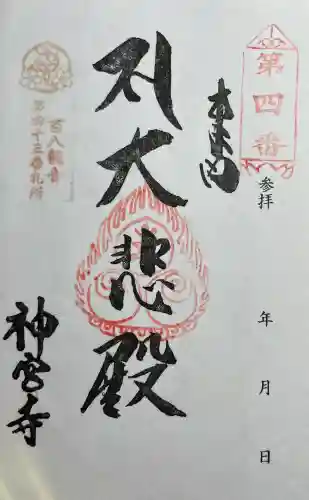 第四番
奉拝
参拝 年 月 日
大悲殿
百八観音
第四十三番札所
神宮寺